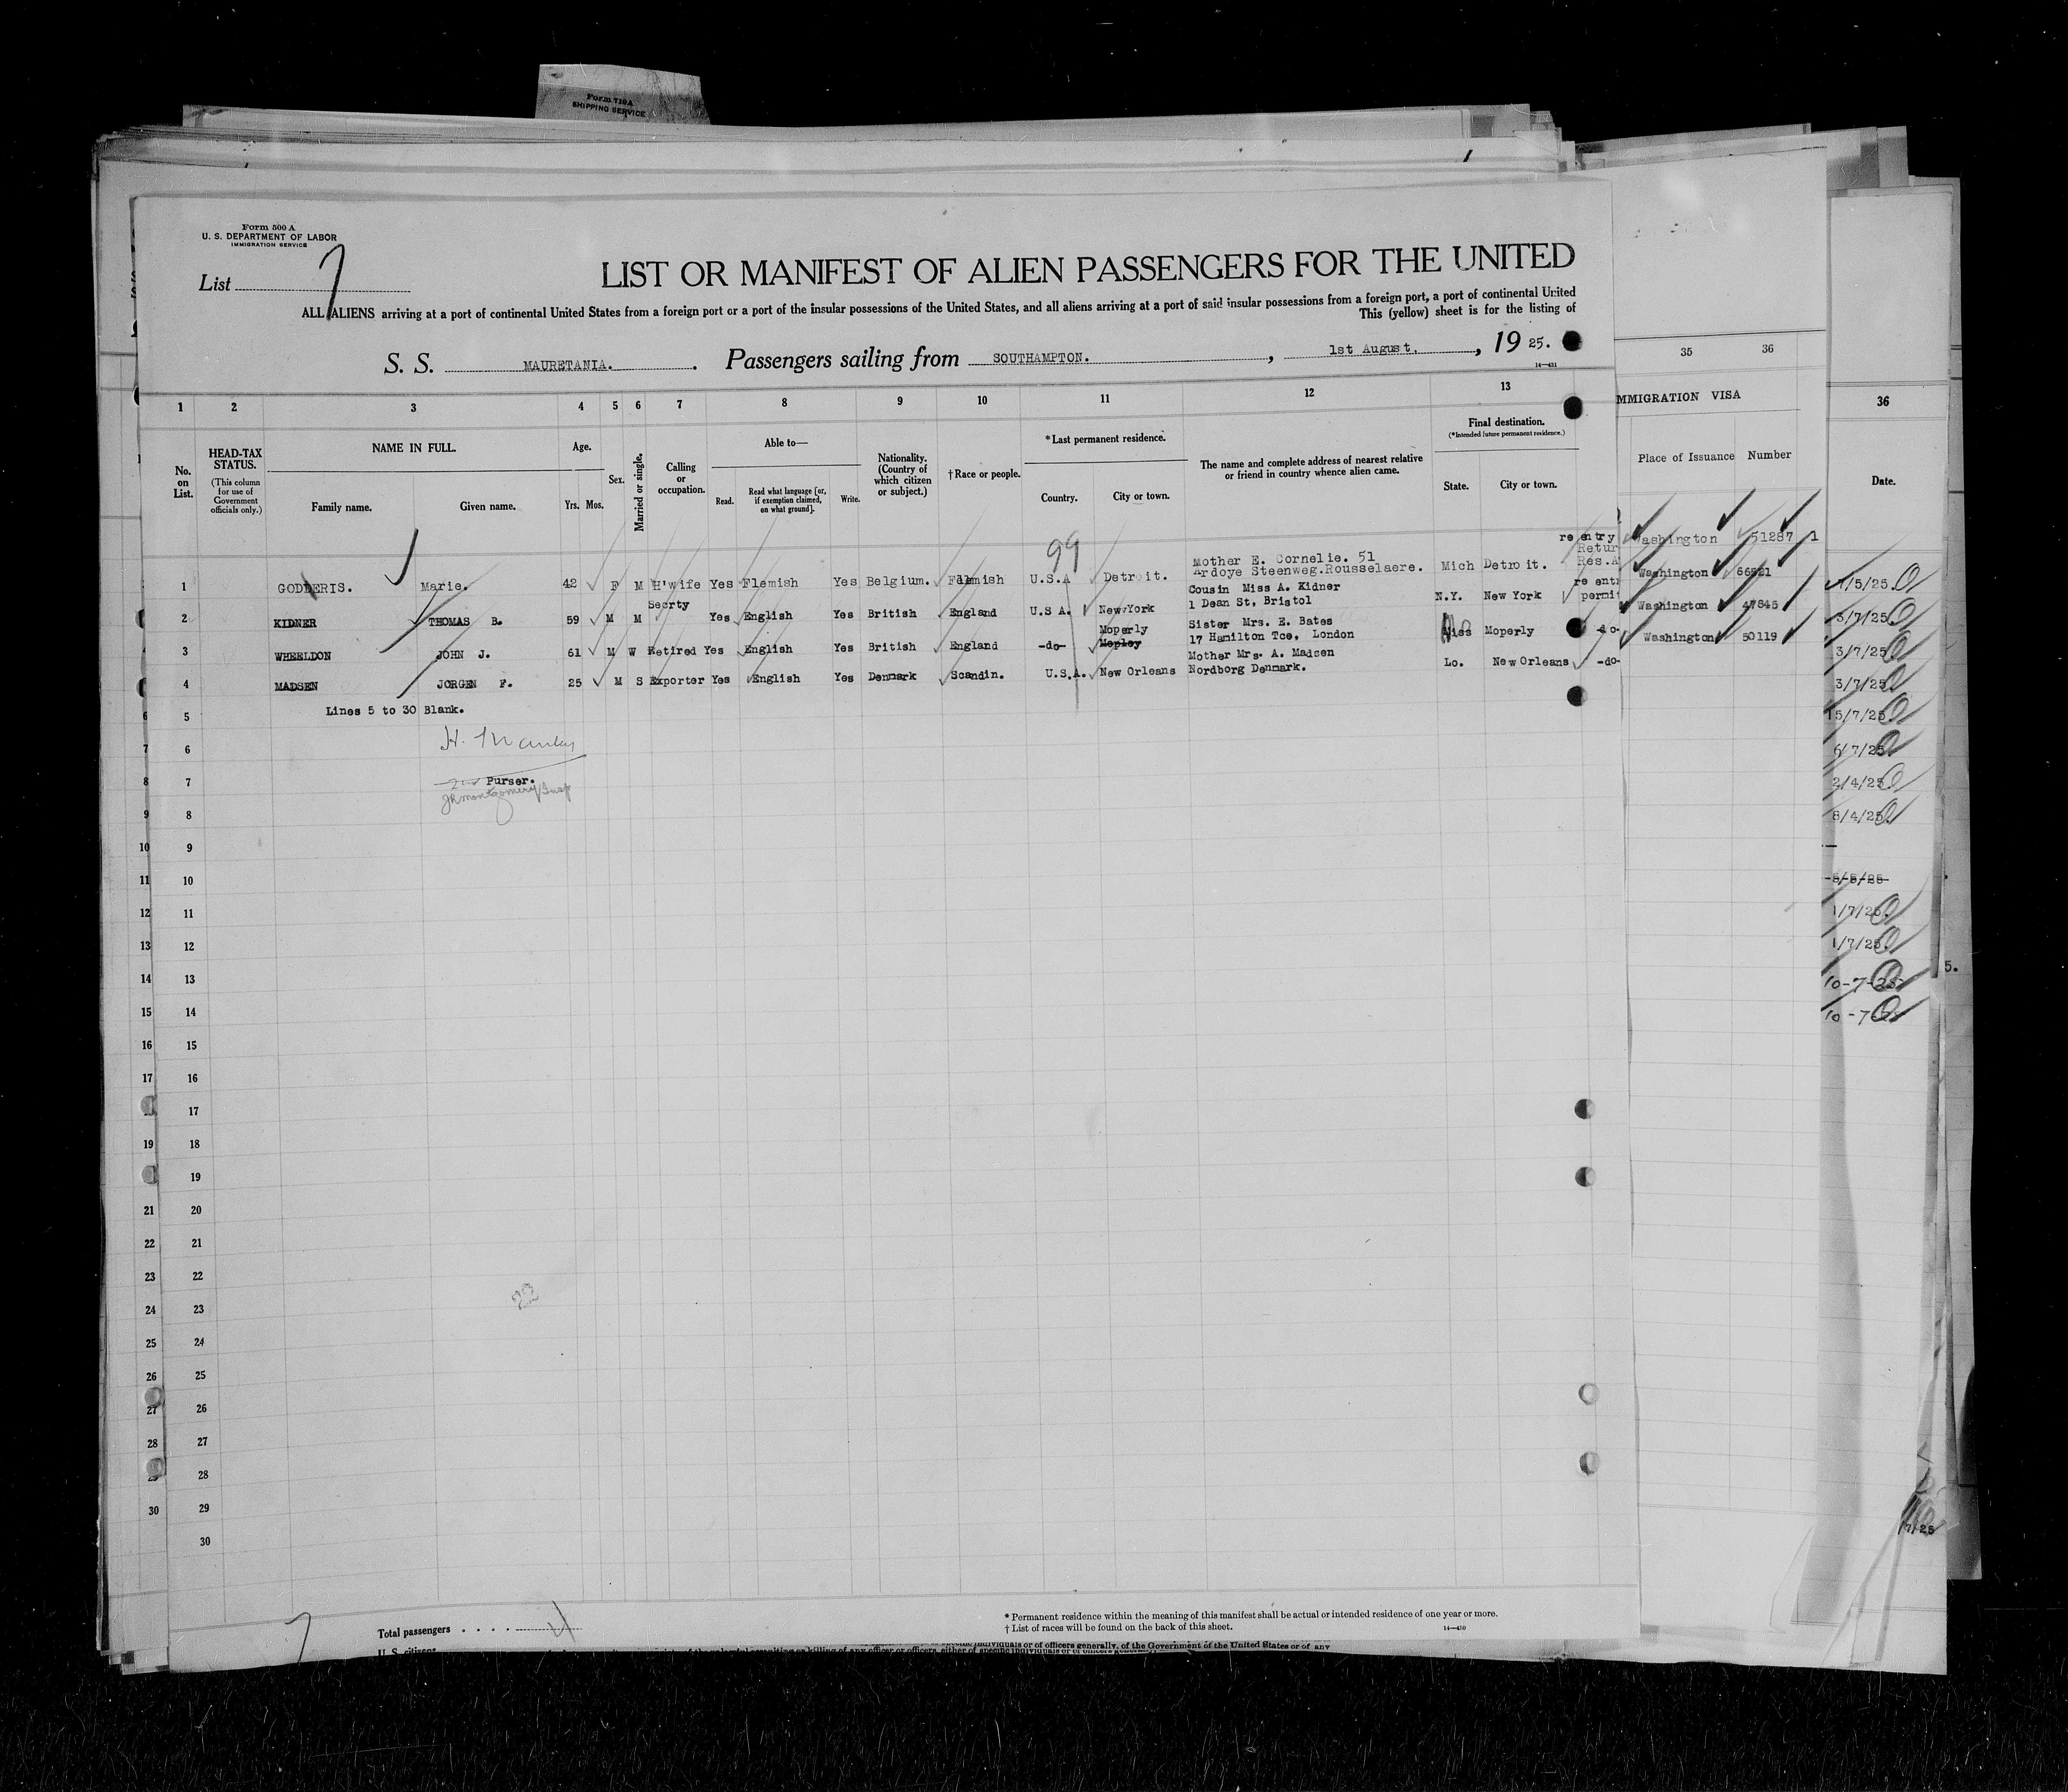 Form 710A
SHIPPING SERVICE
Form 500 A
U. S. DEPARTMENT OF LABOR
IMMIGRATION SERVICE
List 7
LIST OR MANIFEST OF ALIEN PASSENGERS FOR THE UNITED
ALL ALIENS arriving at a port of continental United States from a foreign port or a port of the insular possessions of the United States, and all aliens arriving at a port of said insular possessions from a foreign port, a port of continental United
This (yellow) sheet is for the listing of
S. S. MAURETANIA. Passengers sailing from SOUTHAMPTON. , 1st August, , 19 25.
14—431
1 2 3 4 5 6 7 8 9 10 11 12 13
35 36
MMIGRATION VISA
36
No. on List.
HEAD-TAX STATUS.
(This column for use of Government officials only.)
NAME IN FULL.
Family name. Given name.
Age.
Yrs. Mos.
Sex.
Married or single.
Calling or occupation.
Able to—
Read. Read what language [or, if exemption claimed, on what ground]. Write.
Nationality. (Country of which citizen or subject.)
†Race or people.
*Last permanent residence.
Country. City or town.
The name and complete address of nearest relative or friend in country whence alien came.
Final destination.
(*Intended future permanent residence.)
State. City or town.
Place of Issuance Number
Date.
99
re entry Washington 51287 1
Retur
Mother E. Cornelie. 51
1 GODDERIS. Marie. 42 F M H'wife Yes Flemish Yes Belgium. Flemish U.S.A Detroit. Ardoye Steenweg.Rousselaere. Mich Detroit. Res.A Washington 66521 7/5/25.
Secrty Cousin Miss A. Kidner re ent
2 KIDNER THOMAS B. 59 M M Yes English Yes British England U.S A. New York 1 Dean St, Bristol N.Y. New York permi Washington 47845 3/7/25
Moperly Sister Mrs. E. Bates
3 WHEELDON JOHN J. 61 M W Retired Yes English Yes British England -do- Mopley 17 Hamilton Tce, London Miss Mo Moperly -do- Washington 50119 3/7/25
Mother Mrs. A. Madsen
4 MADSEN JORGEN F. 25 M S Exporter Yes English Yes Denmark Scandin. U.S.A. New Orleans Nordborg Denmark. Lo. New Orleans -do- 3/7/25
Lines 5 to 30 Blank.
6 5 15/7/25
H. Manley
7 6 6/7/25
2nd Purser.
8 7 2/4/25
JR Montgomery Insp
9 8 8/4/25
10 9
11 10 -5/5/25-
12 11 1/7/25
13 12 1/7/25
14 13 10-7-25
5.
15 14 10-7-25
16 15
17 16
17
19 18
19
21 20
22 21
23 22
22
24 23
25 24
26 25
27 26
28 27
28
30 29
7/25
30
* Permanent residence within the meaning of this manifest shall be actual or intended residence of one year or more.
† List of races will be found on the back of this sheet.
14—430
7
Total passengers . . . . 4
U. S. citizens
individuals or of officers generally, of the Government of the United States or of any